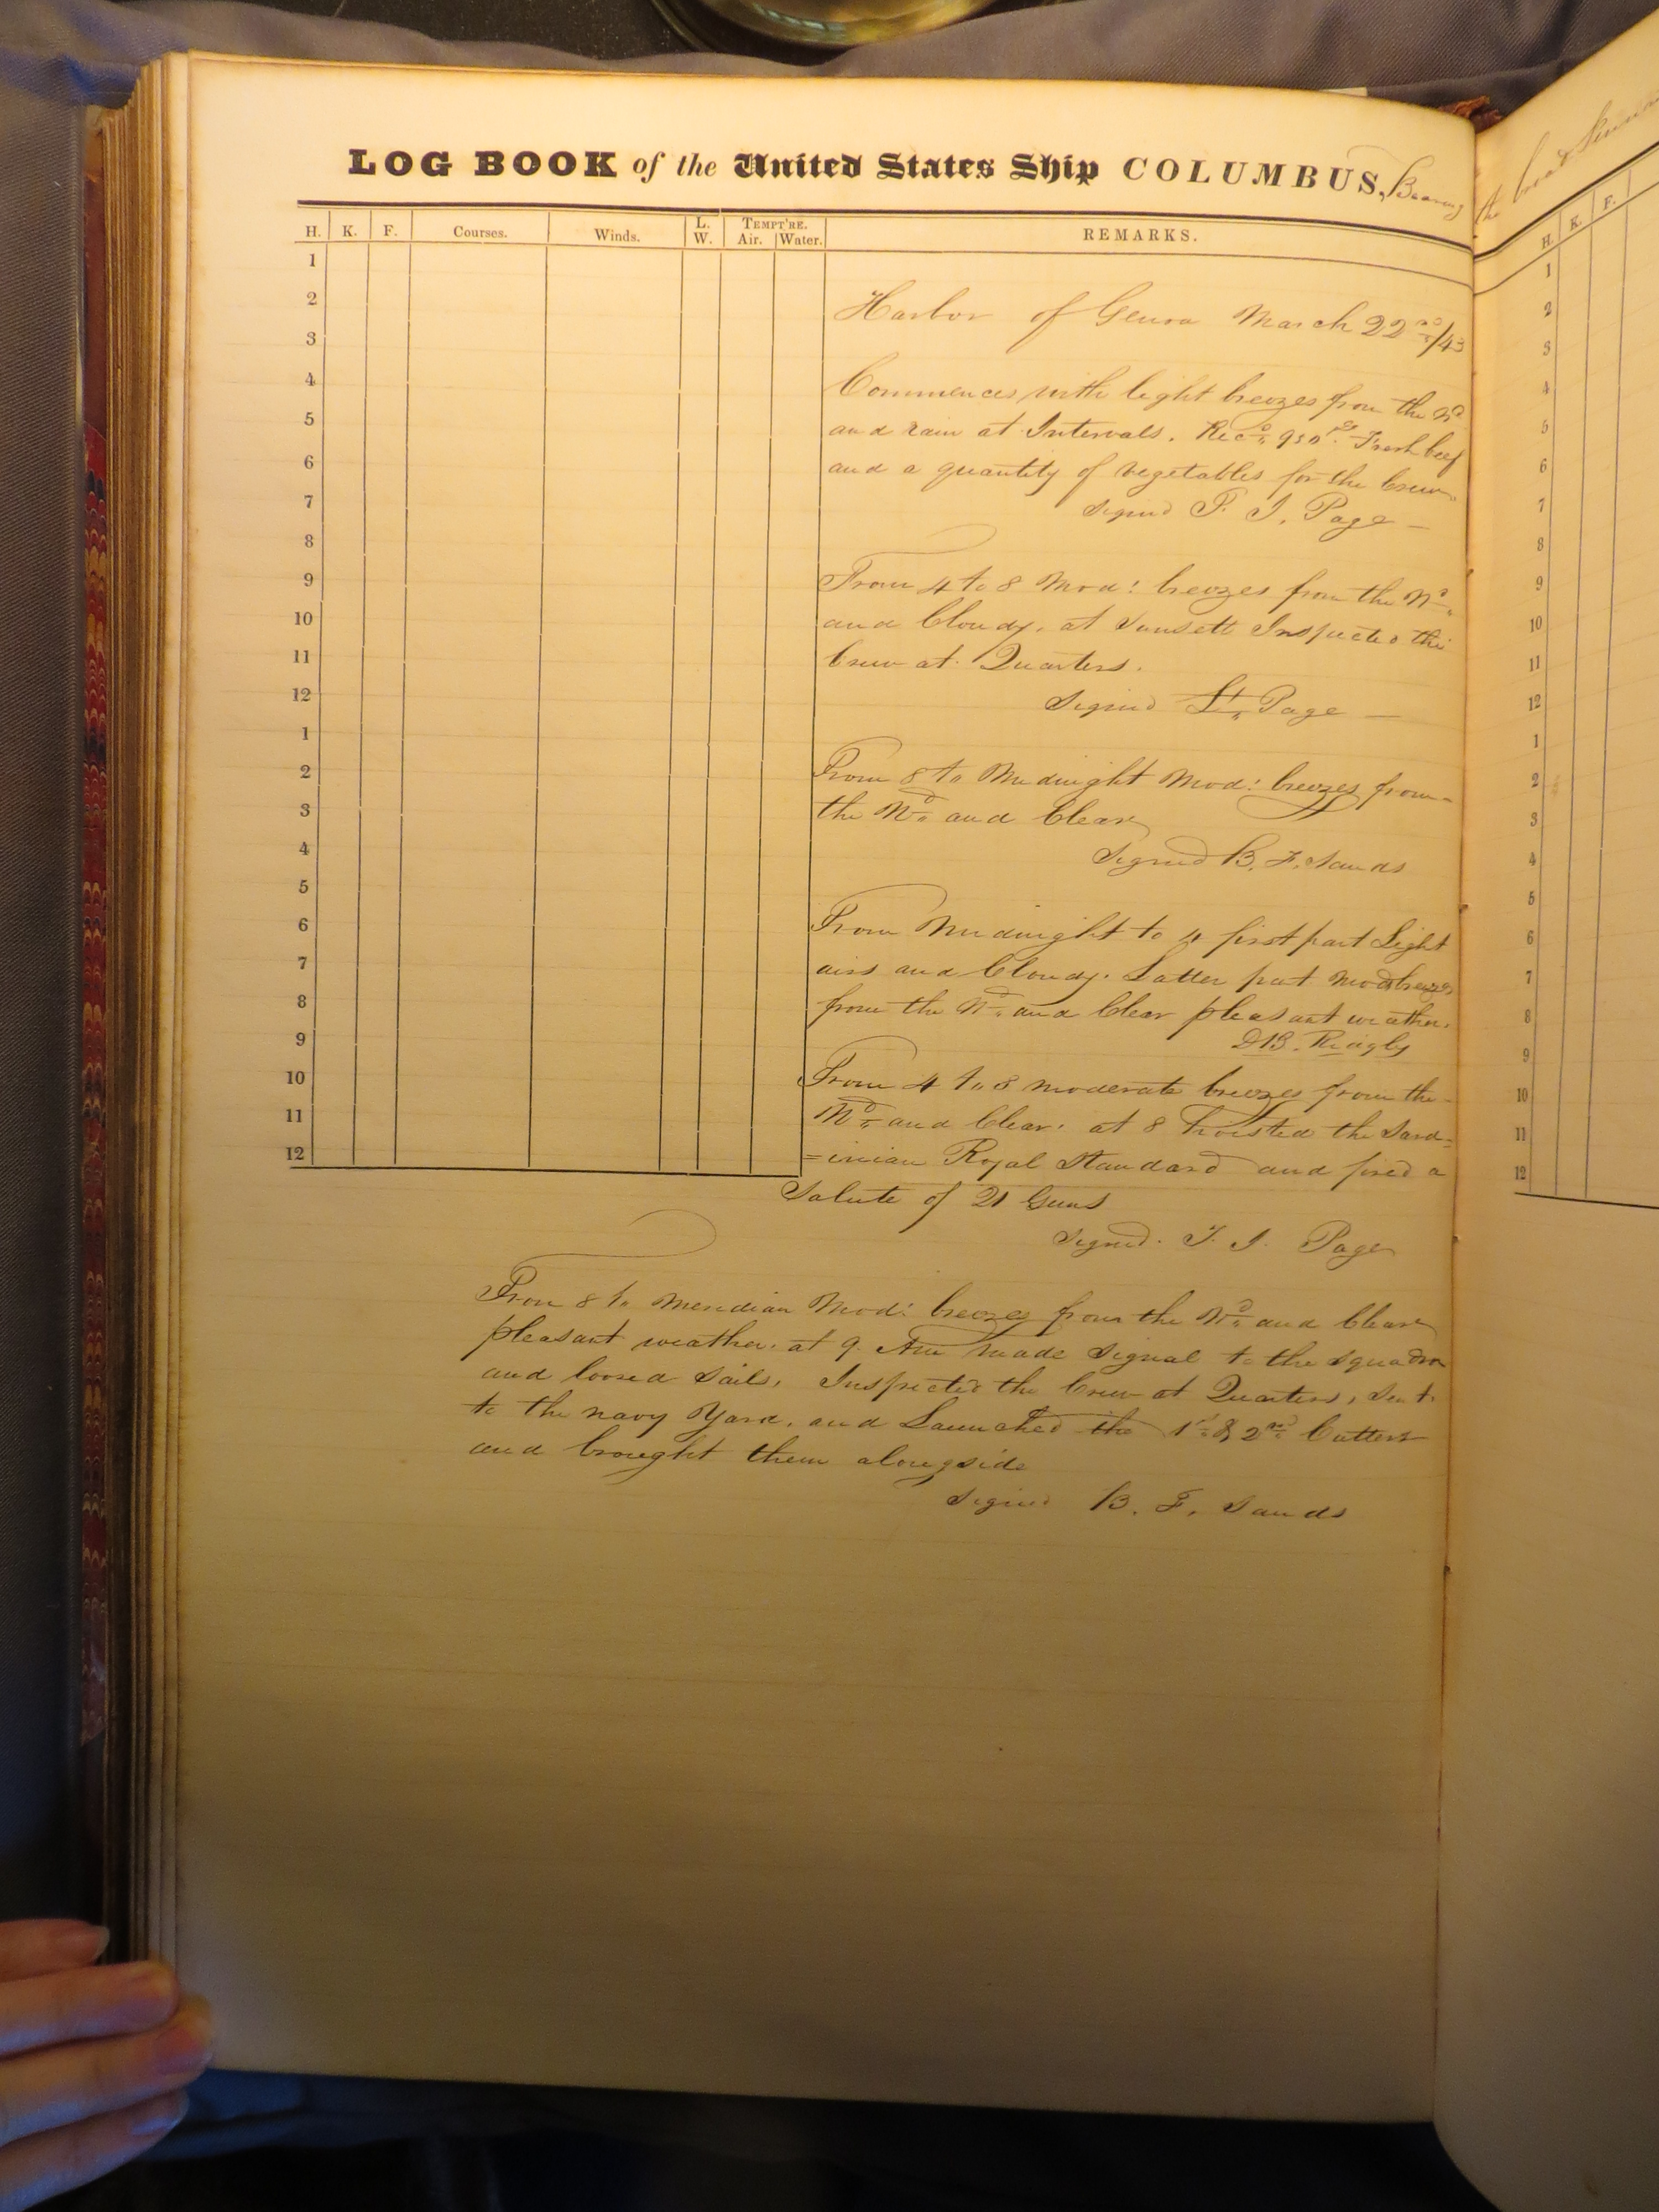 LOG BOOK of the United States Ship COLUMBUS, Bearing
H. K. F. Courses. Winds. L. W. TEMPT'RE. Air. Water. REMARKS.
1
2
3
4
5
6
7
8
9
10
11
12
1
2
3
4
5
6
7
8
9
10
11
12
Harbor of Genoa March 22nd/43
Commences with light breezes from the Nd
and rain at Intervals. Recd 930 lbs Fresh beef
and a quantity of vegetables for the Crew.
Signed T. J. Page
From 4 to 8 Mod: breezes from the Nd
and Cloudy. at Sunsett Inspected the
Crew at Quarters.
Signed Lt Page
From 8 to Midnight Mod: breezes from
the Nd and Clear
Signed B. F. Sands
From Midnight to 4 first part Light
airs and Cloudy. Latter part Mod breezes
from the Nd and Clear pleasant weather.
D B. Ridgly
From 4 to 8 moderate breezes from the
Nd and Clear. at 8 hoisted the Sard=
=inian Royal Standard and fired a
Salute of 21 Guns
Signed. T. J. Page
From 8 to Meridian Mod: breezes from the Nd and Clear
pleasant weather. at 9. Am made Signal to the Squadron
and loosed Sails. Inspected the Crew at Quarters, Sent
to the navy Yard. and Launched the 1st & 2nd Cutters
and brought them alongside
Signed B. F. Sands
the broad
H. K. F.
1
2
3
4
5
6
7
8
9
10
11
12
1
2
3
4
5
6
7
8
9
10
11
12